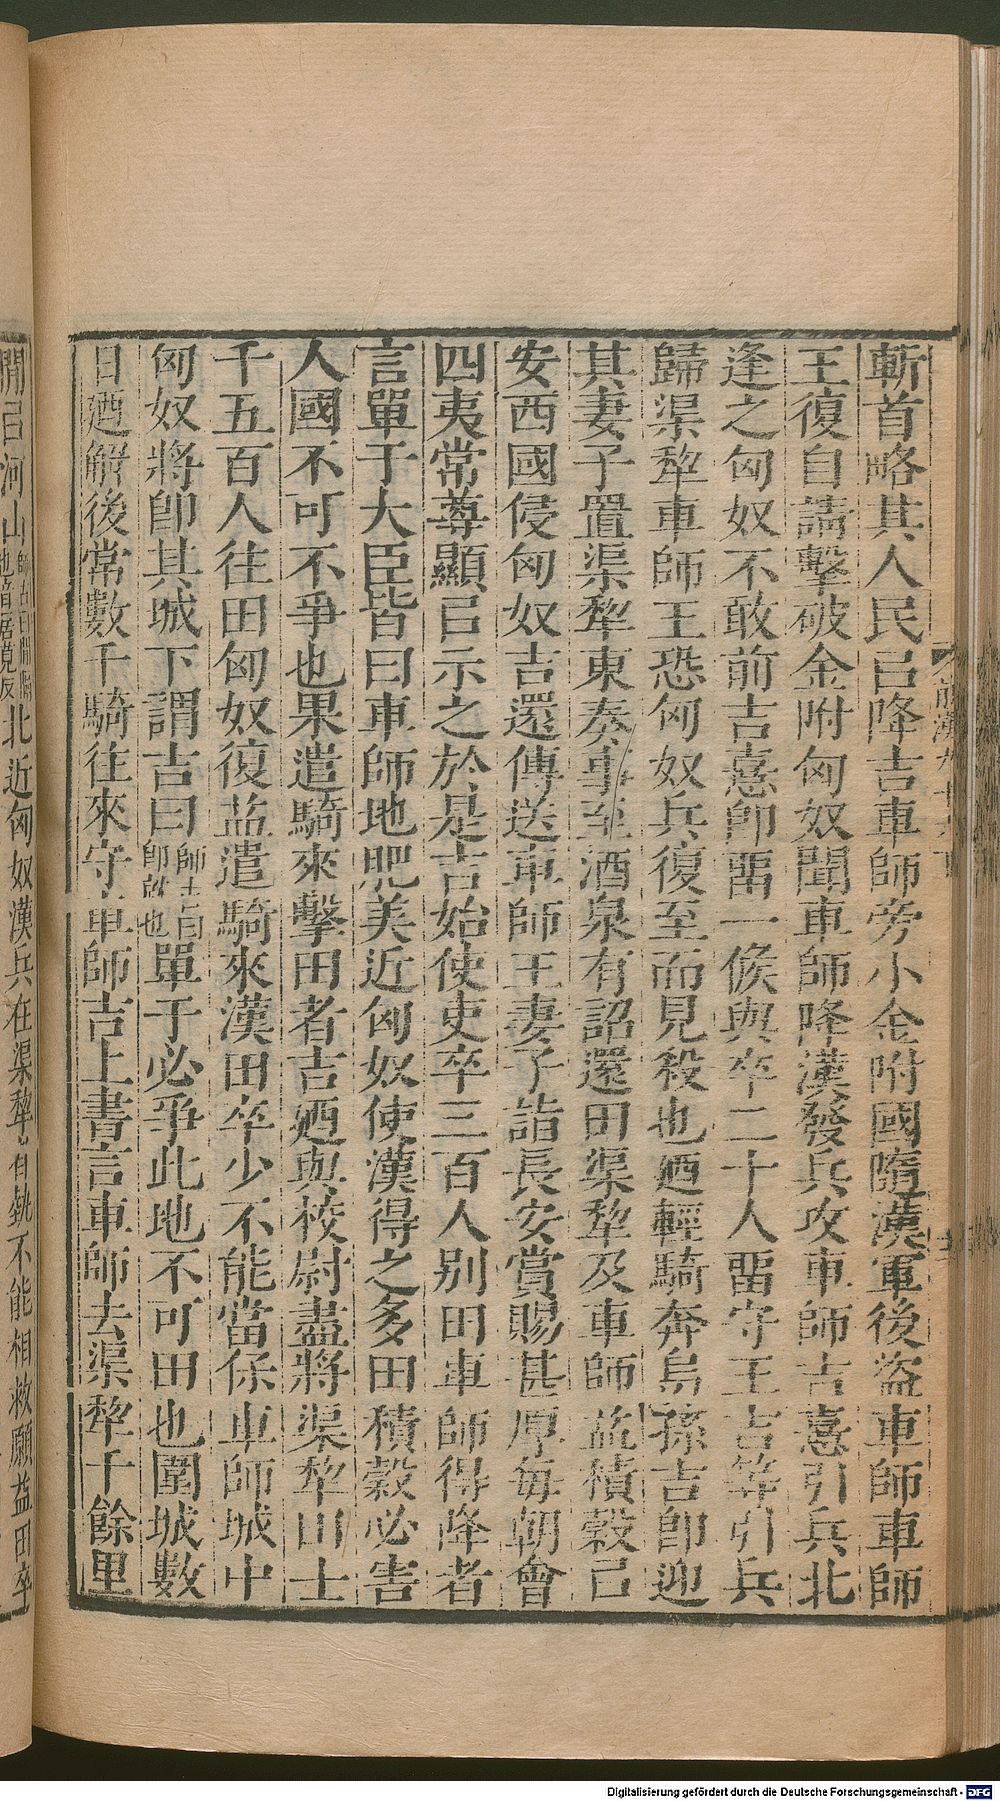 斬首略其人民㠯降吉車師旁小金附國隨漢軍後盜車師車師
王復自請擊破金附匈奴聞車師降漢發兵攻車師吉憙引兵北
逢之匈奴不敢前吉憙卽畱一候與卒二十人畱守王吉等引兵
歸渠犂車師王恐匈奴兵復至而見殺也廼輕騎奔烏孫吉卽迎
其妻子置渠犂東奏事至酒泉有詔還田渠犂及車師益積穀㠯
安西國侵匈奴吉還傳送車師王妻子詣長安賞賜甚厚每朝會
四夷常尊顯㠯示之於是吉始使吏卒三百人別田車師得降者
言單于大臣皆曰車師地肥美近匈奴使漢得之多田積穀必害
人國不可不爭也果遣騎來擊田者吉廼與校尉盡將渠犂田士
千五百人往田匈奴復益遣騎來漢田卒少不能當保車師城中
匈奴將卽其城下謂吉曰師古曰卽就也單于必爭此地不可田也圍城數
日廼解後常數千騎往來守車師吉上書言車師去渠犂千餘里
閒㠯河山師古曰閒隔也音居莧反北近匈奴漢兵在渠犂者埶不能相救願益田卒
Digitalisierung gefördert durch die Deutsche Forschungsgemeinschaft - DFG